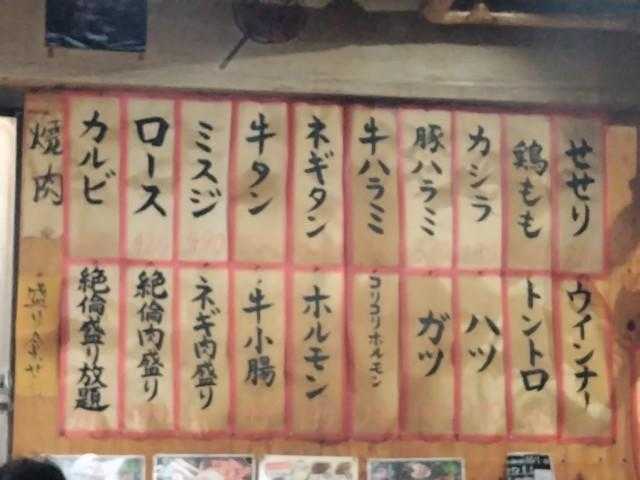 せせり
鶏もも
カシラ
豚ハラミ
牛ハラミ
ネギタン
牛タン
ミスジ
ロース
カルビ
焼肉
ウインナー
トントロ
ハツ
ガツ
コリコリホルモン
ホルモン
牛小腸
ネギ肉盛り
絶倫肉盛り
絶倫盛り放題